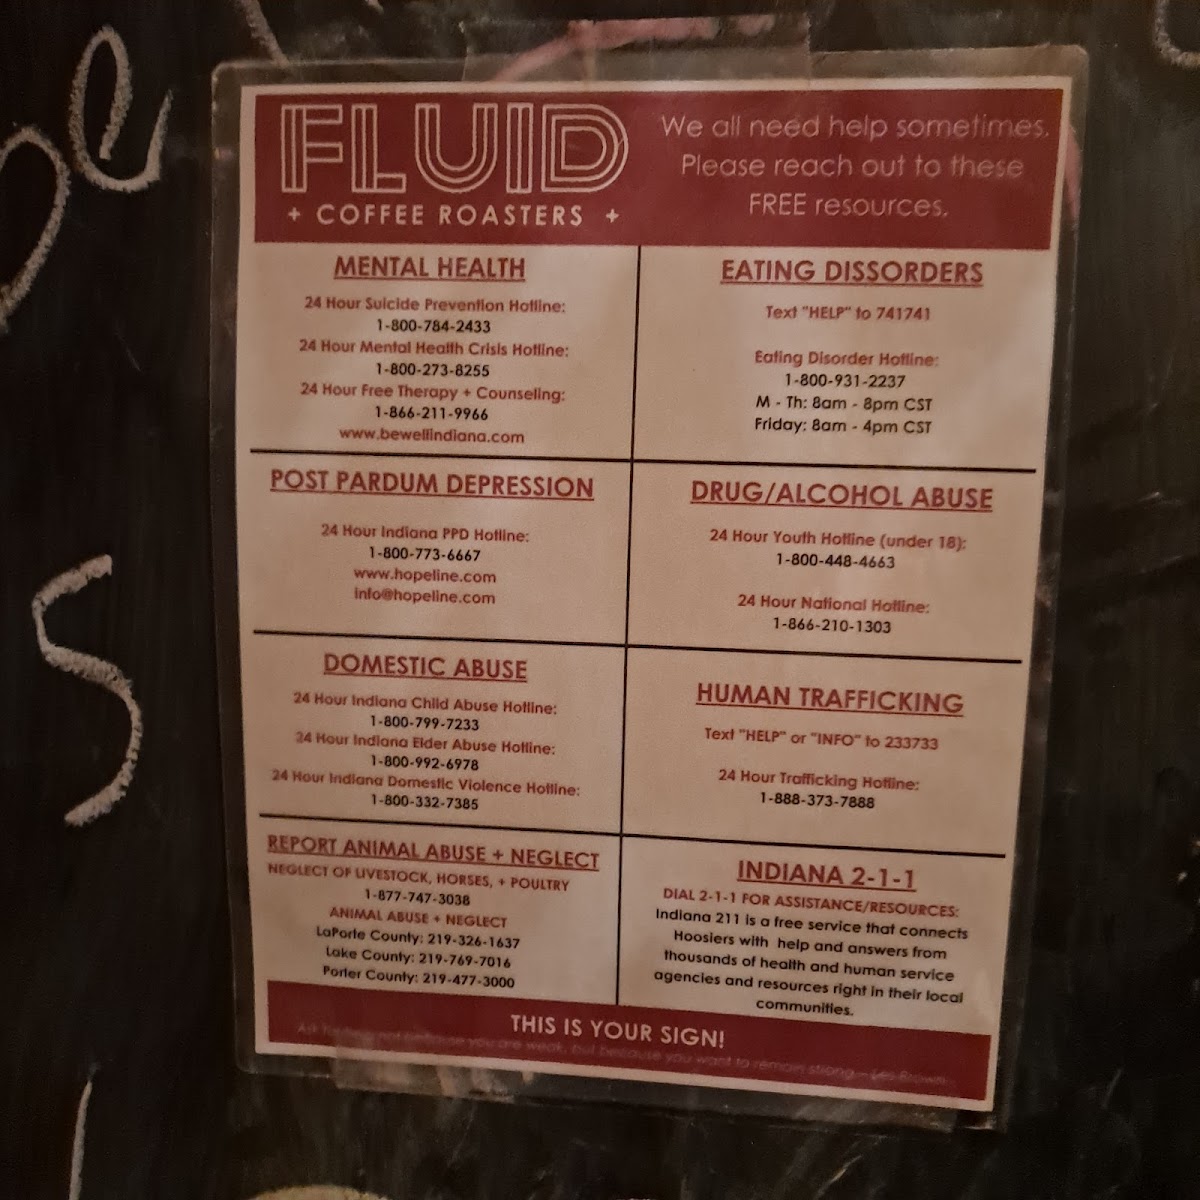 FLUID
+ COFFEE ROASTERS +
We all need help sometimes.
Please reach out to these
FREE resources.
MENTAL HEALTH
24 Hour Suicide Prevention Hotline:
1-800-784-2433
24 Hour Mental Health Crisis Hotline:
1-800-273-8255
24 Hour Free Therapy + Counseling:
1-866-211-9966
www.bewellindiana.com
EATING DISSORDERS
Text "HELP" to 741741
Eating Disorder Hotline:
1-800-931-2237
M - Th: 8am - 8pm CST
Friday: 8am - 4pm CST
POST PARDUM DEPRESSION
24 Hour Indiana PPD Hotline:
1-800-773-6667
www.hopeline.com
info@hopeline.com
DRUG/ALCOHOL ABUSE
24 Hour Youth Hotline (under 18):
1-800-448-4663
24 Hour National Hotline:
1-866-210-1303
DOMESTIC ABUSE
24 Hour Indiana Child Abuse Hotline:
1-800-799-7233
24 Hour Indiana Elder Abuse Hotline:
1-800-992-6978
24 Hour Indiana Domestic Violence Hotline:
1-800-332-7385
HUMAN TRAFFICKING
Text "HELP" or "INFO" to 233733
24 Hour Trafficking Hotline:
1-888-373-7888
REPORT ANIMAL ABUSE + NEGLECT
NEGLECT OF LIVESTOCK, HORSES, + POULTRY
1-877-747-3038
ANIMAL ABUSE + NEGLECT
LaPorte County: 219-326-1637
Lake County: 219-769-7016
Porter County: 219-477-3000
INDIANA 2-1-1
DIAL 2-1-1 FOR ASSISTANCE/RESOURCES:
Indiana 211 is a free service that connects
Hoosiers with help and answers from
thousands of health and human service
agencies and resources right in their local
communities.
THIS IS YOUR SIGN!
not because you are weak, but because you want to remain strong. - Les Brown